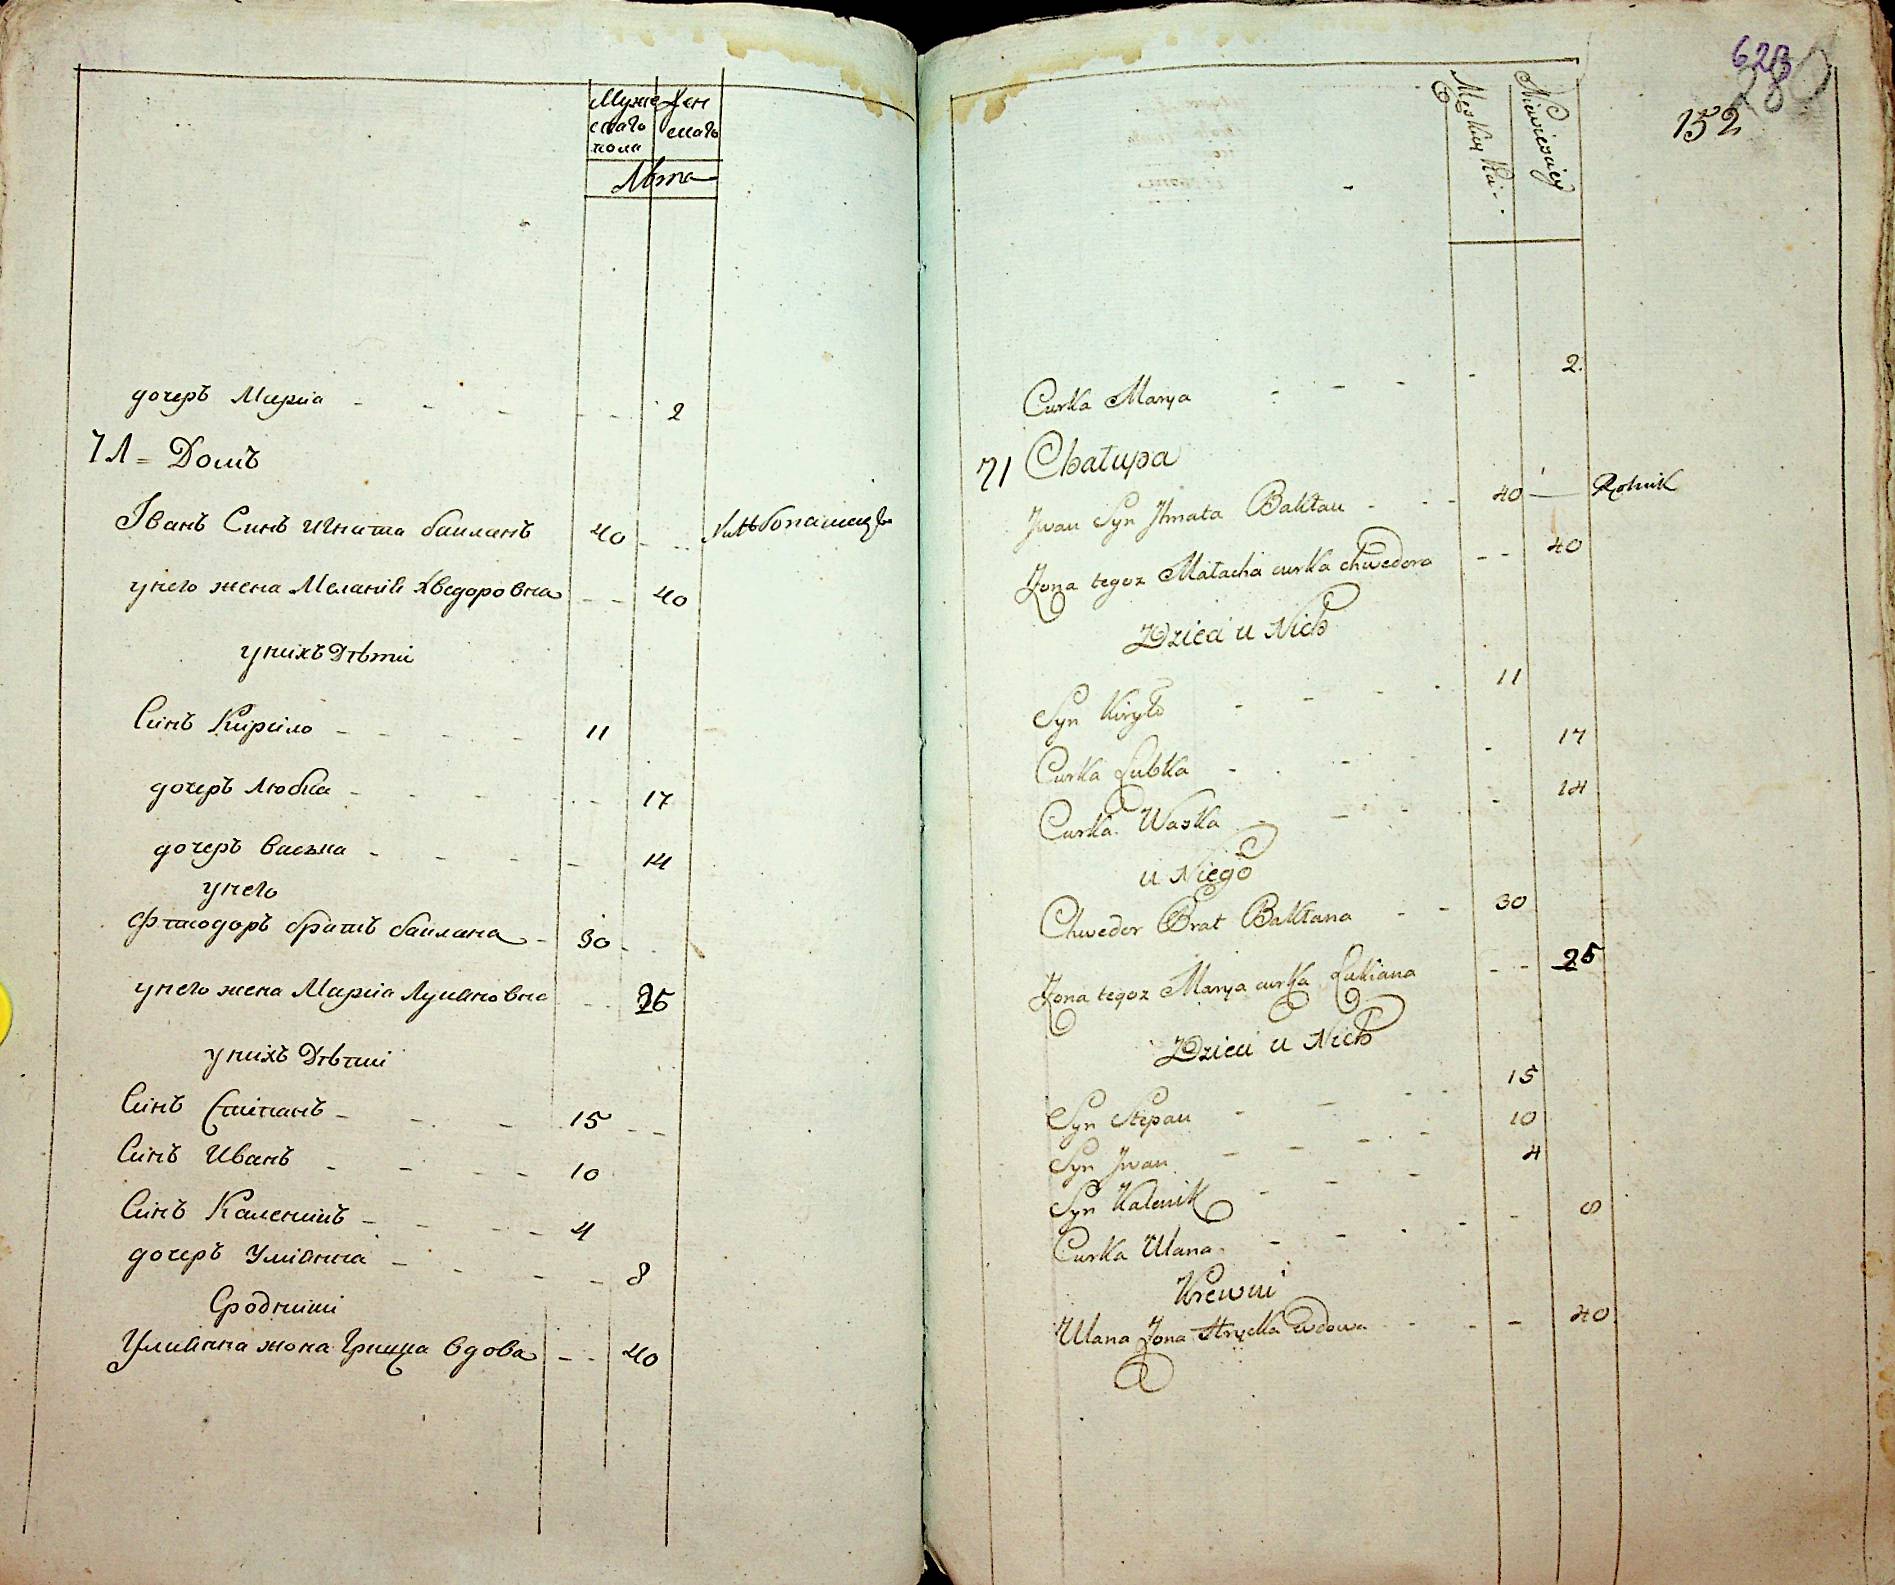 Мужескаго пола
Женскаго
Лѣта
дочеръ Марiа 2
71 = Домъ
Iванъ Синъ Игната бакланъ 40 хлѣбопашецъ
унего жена Меланiя Хведоровна 40
унихъ Дѣти
Синъ Кирило 11
дочеръ Любка 17
дочеръ васька 14
унего
Фтиодоръ братъ баклана 30
унего жена Марiа Лукiановна 25
унихъ Дѣтии
Синъ Стипанъ 15
Синъ Иванъ 10
Синъ Каленикъ 4
дочеръ Улиянна 8
Сродники
Улиянна жона Грицка вдова 40
623
280
152
Męskiey
Niewieściey
Curka Marya 2
71 Chałupa
Jwan Syn Jhnata Bakłan 40 Rolnik
Żona tegoz Małacha curka chwedora 40
Dzieci u Nich
Syn Kiryło 11
Curka Łubka 17
Curka Waska 14
u Niego
Chwedor Brat Bakłana 30
Żona tegoz Marya curka Łukiana 25
Dzieci u Nich
Syn Stepan 15
Syn Jwan 10
Syn Kalenik 4
Curka Ulana 8
Krewni
Ulana Żona Hrycka wdowa 40